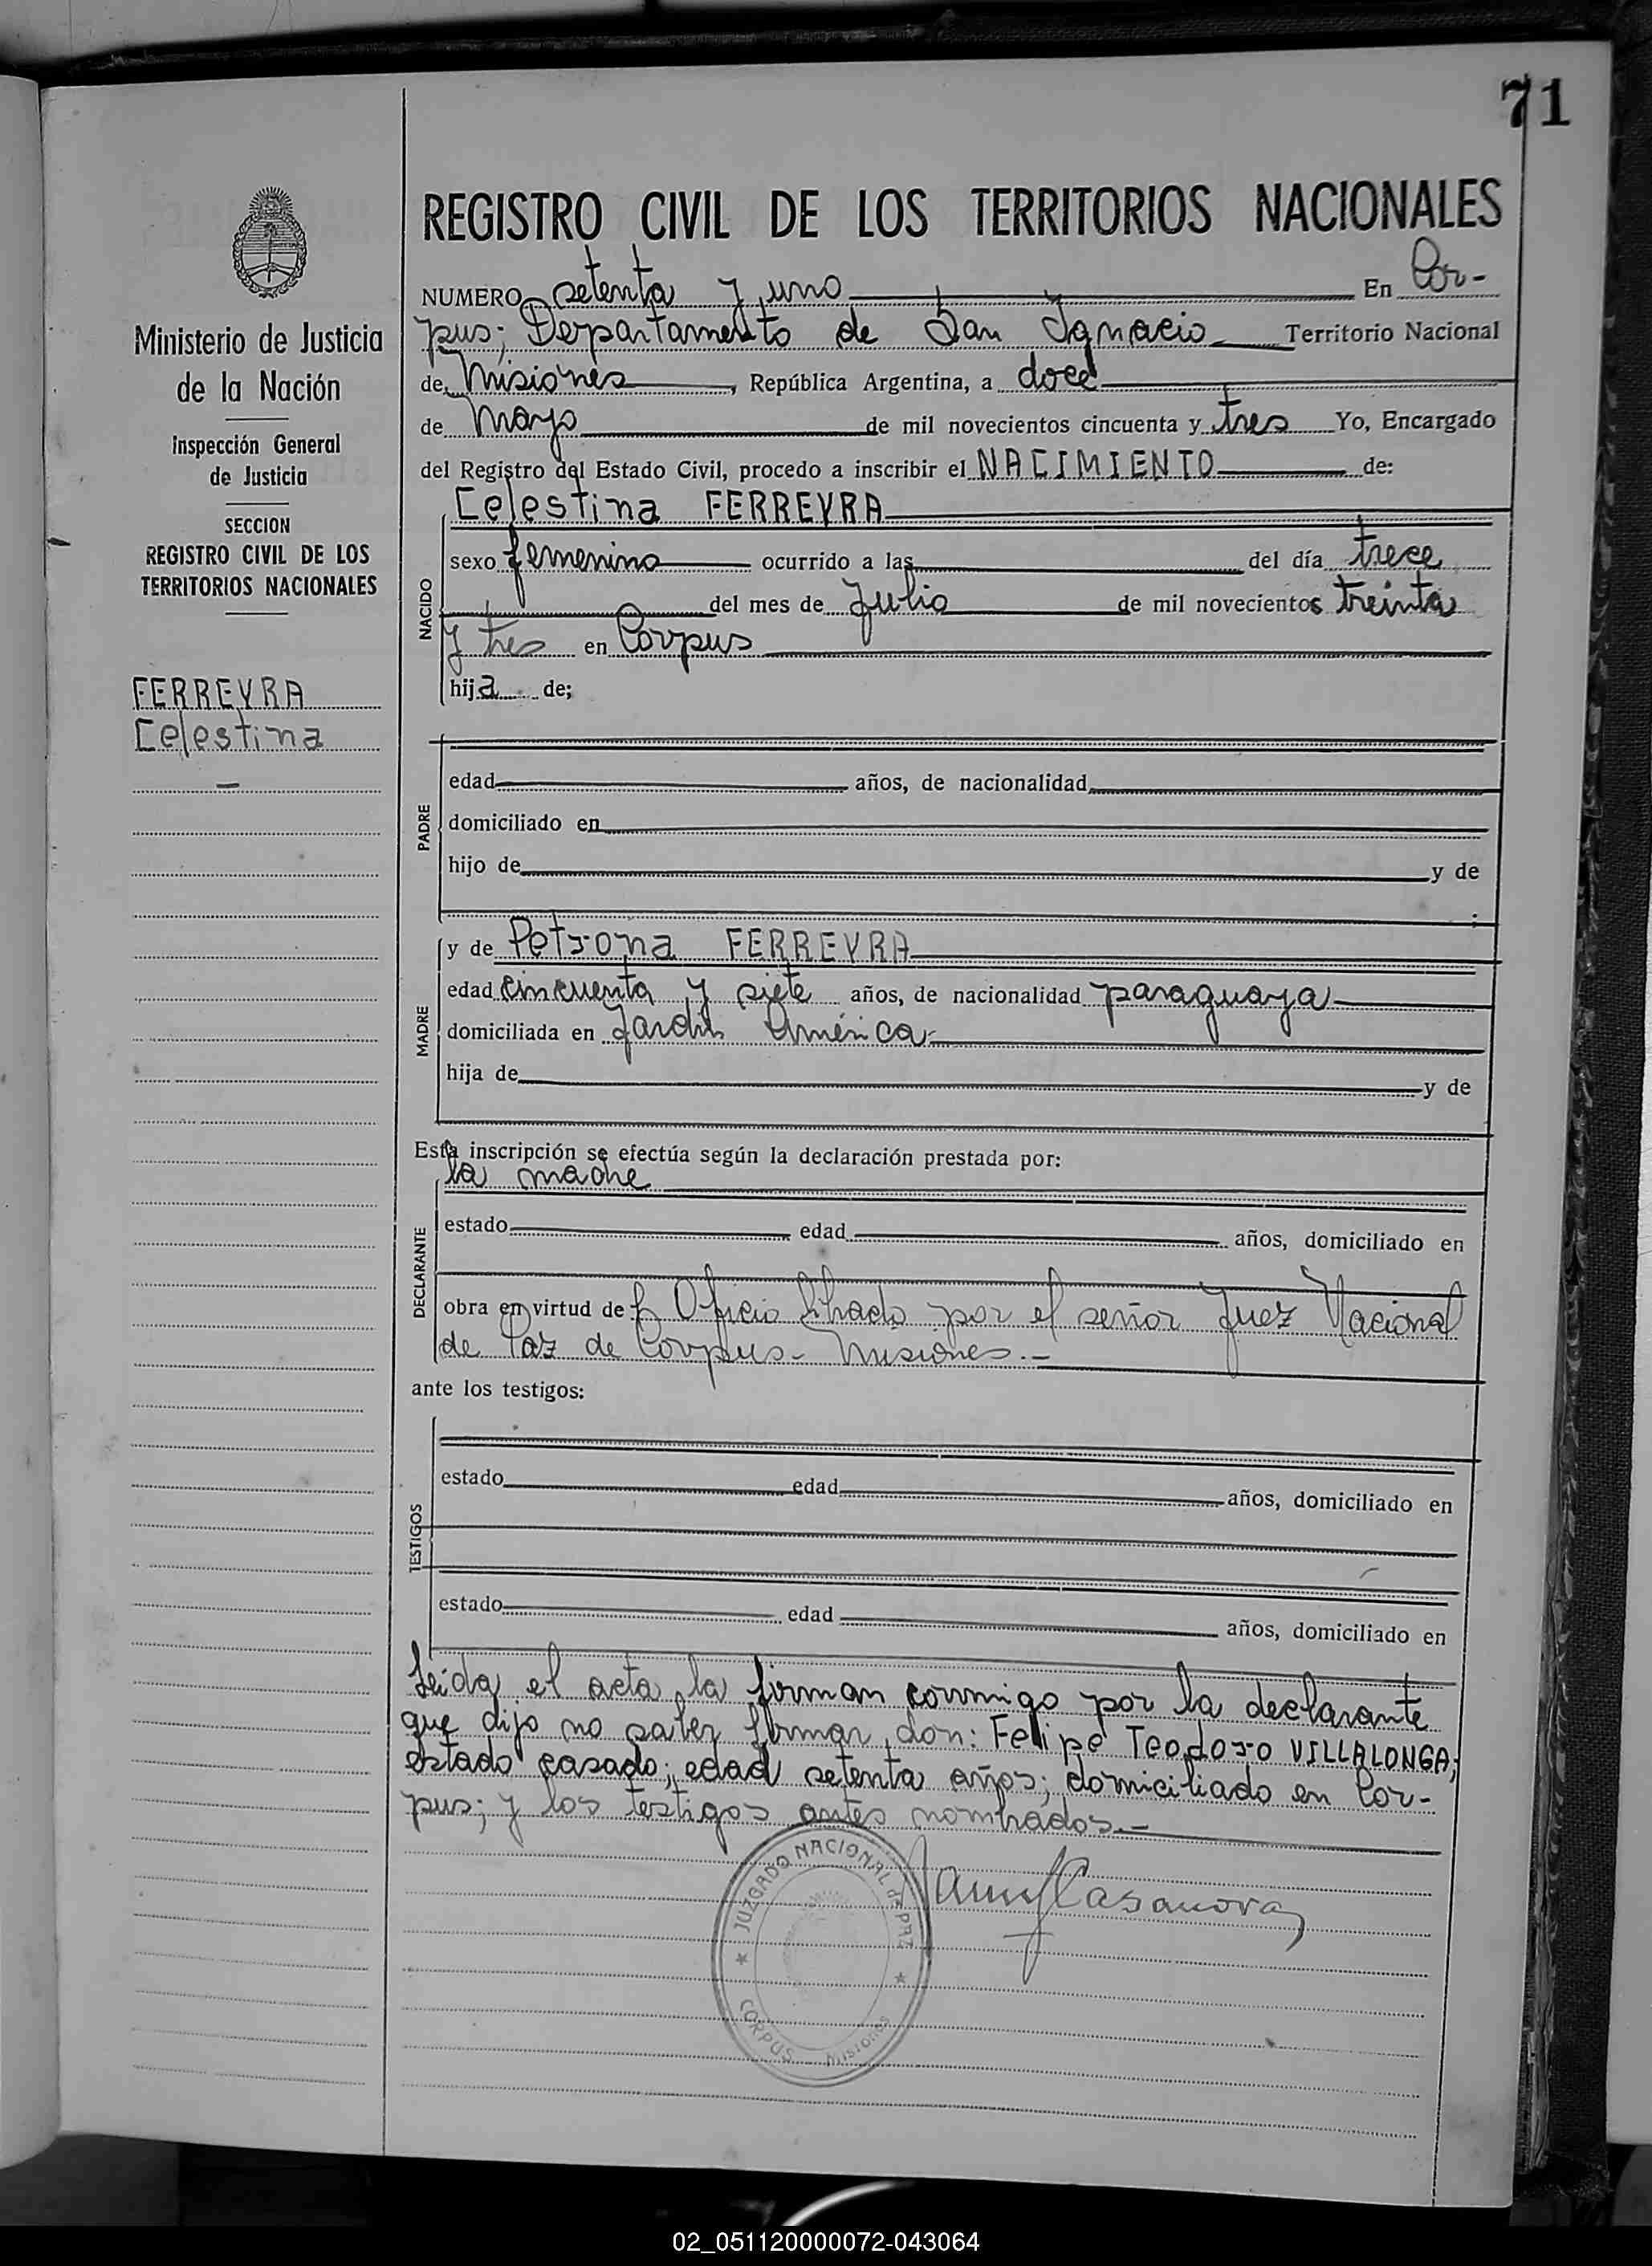 71
REGISTRO CIVIL DE LOS TERRITORIOS NACIONALES
NUMERO setenta y uno En Cor-
pus; Departamento de San Ignacio Territorio Nacional
de Misiones, República Argentina, a doce
de Mayo de mil novecientos cincuenta y tres Yo, Encargado
del Registro del Estado Civil, procedo a inscribir el NACIMIENTO de:
Ministerio de Justicia
de la Nación
Inspección General
de Justicia
SECCION
REGISTRO CIVIL DE LOS
TERRITORIOS NACIONALES
FERREYRA
Celestina
NACIDO
Celestina FERREYRA
sexo femenino ocurrido a las del día trece
del mes de Julio de mil novecientos treinta
y tres en Corpus
hija de;
PADRE
edad años, de nacionalidad
domiciliado en
hijo de y de
;
MADRE
y de Petrona FERREYRA
edad cincuenta y siete años, de nacionalidad paraguaya
domiciliada en Jardín América
hija de y de
Esta inscripción se efectúa según la declaración prestada por:
DECLARANTE
la madre
estado edad años, domiciliado en
obra en virtud de Oficio librado por el señor Juez Nacional
de Paz de Corpus- Misiones.-
ante los testigos:
TESTIGOS
estado edad años, domiciliado en
estado edad años, domiciliado en
Leida el acta, la firman conmigo por la declarante
que dijo no saber firmar, don: Felipe Teodoro VILLALONGA;
estado casado; edad setenta años; domiciliado en Cor-
pus; y los testigos antes nombrados.-
Casanova
JUZGADO NACIONAL de PAZ
CORPUS Misiones
02_051120000072-043064